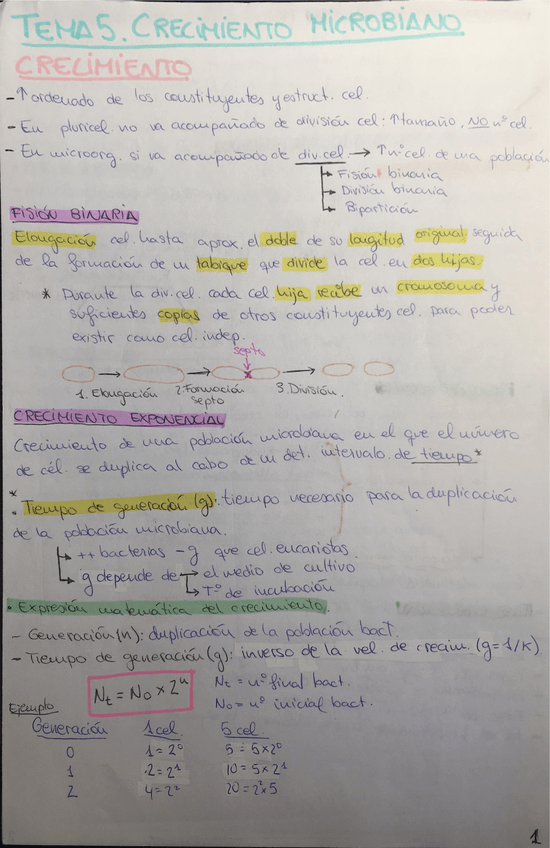 TEMA 5. CRECIMIENTO MICROBIANO
CRECIMIENTO
- ↑ ordenado de los constituyentes y estruct. cel.
- En pluricel. no va acompañado de división cel: ↑tamaño, NO nº cel.
- En microorg. si va acompañado de div. cel. → ↑ nº cel de una población
→ Fisión binaria
→ División binaria
→ Bipartición
FISIÓN BINARIA
Elongación cel. hasta aprox. el doble de su longitud original seguida
de la formación de un tabique que divide la cel. en dos hijas.
* Durante la div. cel. cada cel hija recibe un cromosoma y
suficientes copias de otros constituyentes cel. para poder
existir como cel. indep.
septo
1. Elongación 2. Formación septo 3. División.
CRECIMIENTO EXPONENCIAL
Crecimiento de una población microbiana en el que el número
de cél. se duplica al cabo de un det. intervalo de tiempo*
* . Tiempo de generación (g): tiempo necesario para la duplicación
de la población microbiana.
→ ++ bacterias - g que cel. eucariotas.
→ g depende de → el medio de cultivo
→ Tº de incubación
· Expresión matemática del crecimiento.
- Generación (n): duplicación de la población bact.
- Tiempo de generación (g): inverso de la vel. de crecim. (g = 1/K).
Nt = N0 × 2ⁿ
Nt = nº final bact.
N0 = nº inicial bact.
Ejemplo
Generación 1 cel. 5 cel.
0 1 = 2⁰ 5 = 5×2⁰
1 2 = 2¹ 10 = 5×2¹
2 4 = 2² 20 = 2²×5
1